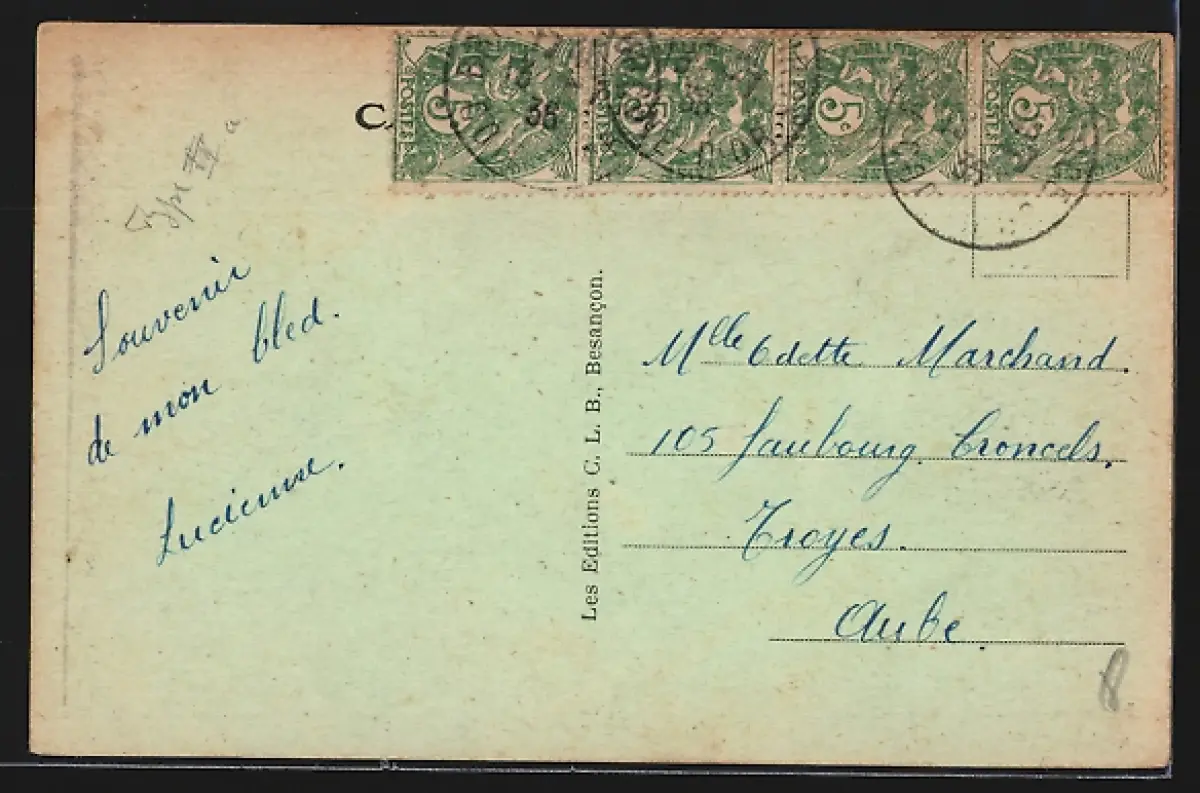 C.
5c
5c
5c
5c
POSTES
POSTES
36
Type II a
Souvenir
de mon bled.
Lucienne.
Les Editions C. L. B., Besançon.
Mlle Odette Marchand.
105 faubourg Croncels.
Troyes.
Aube
8